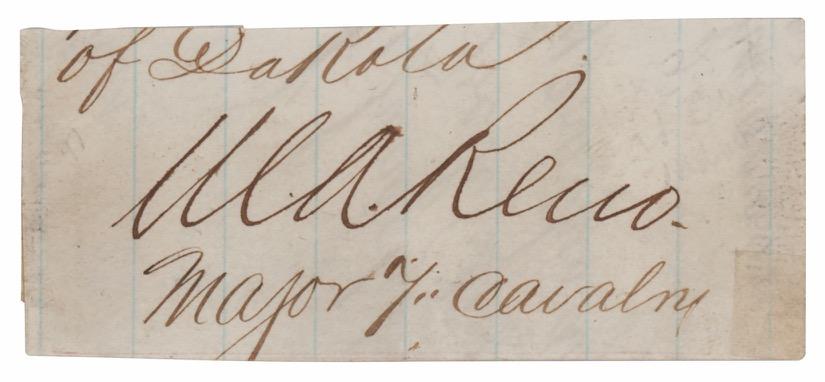 of Dakota.
M. A. Reno.
Major 7" Cavalry